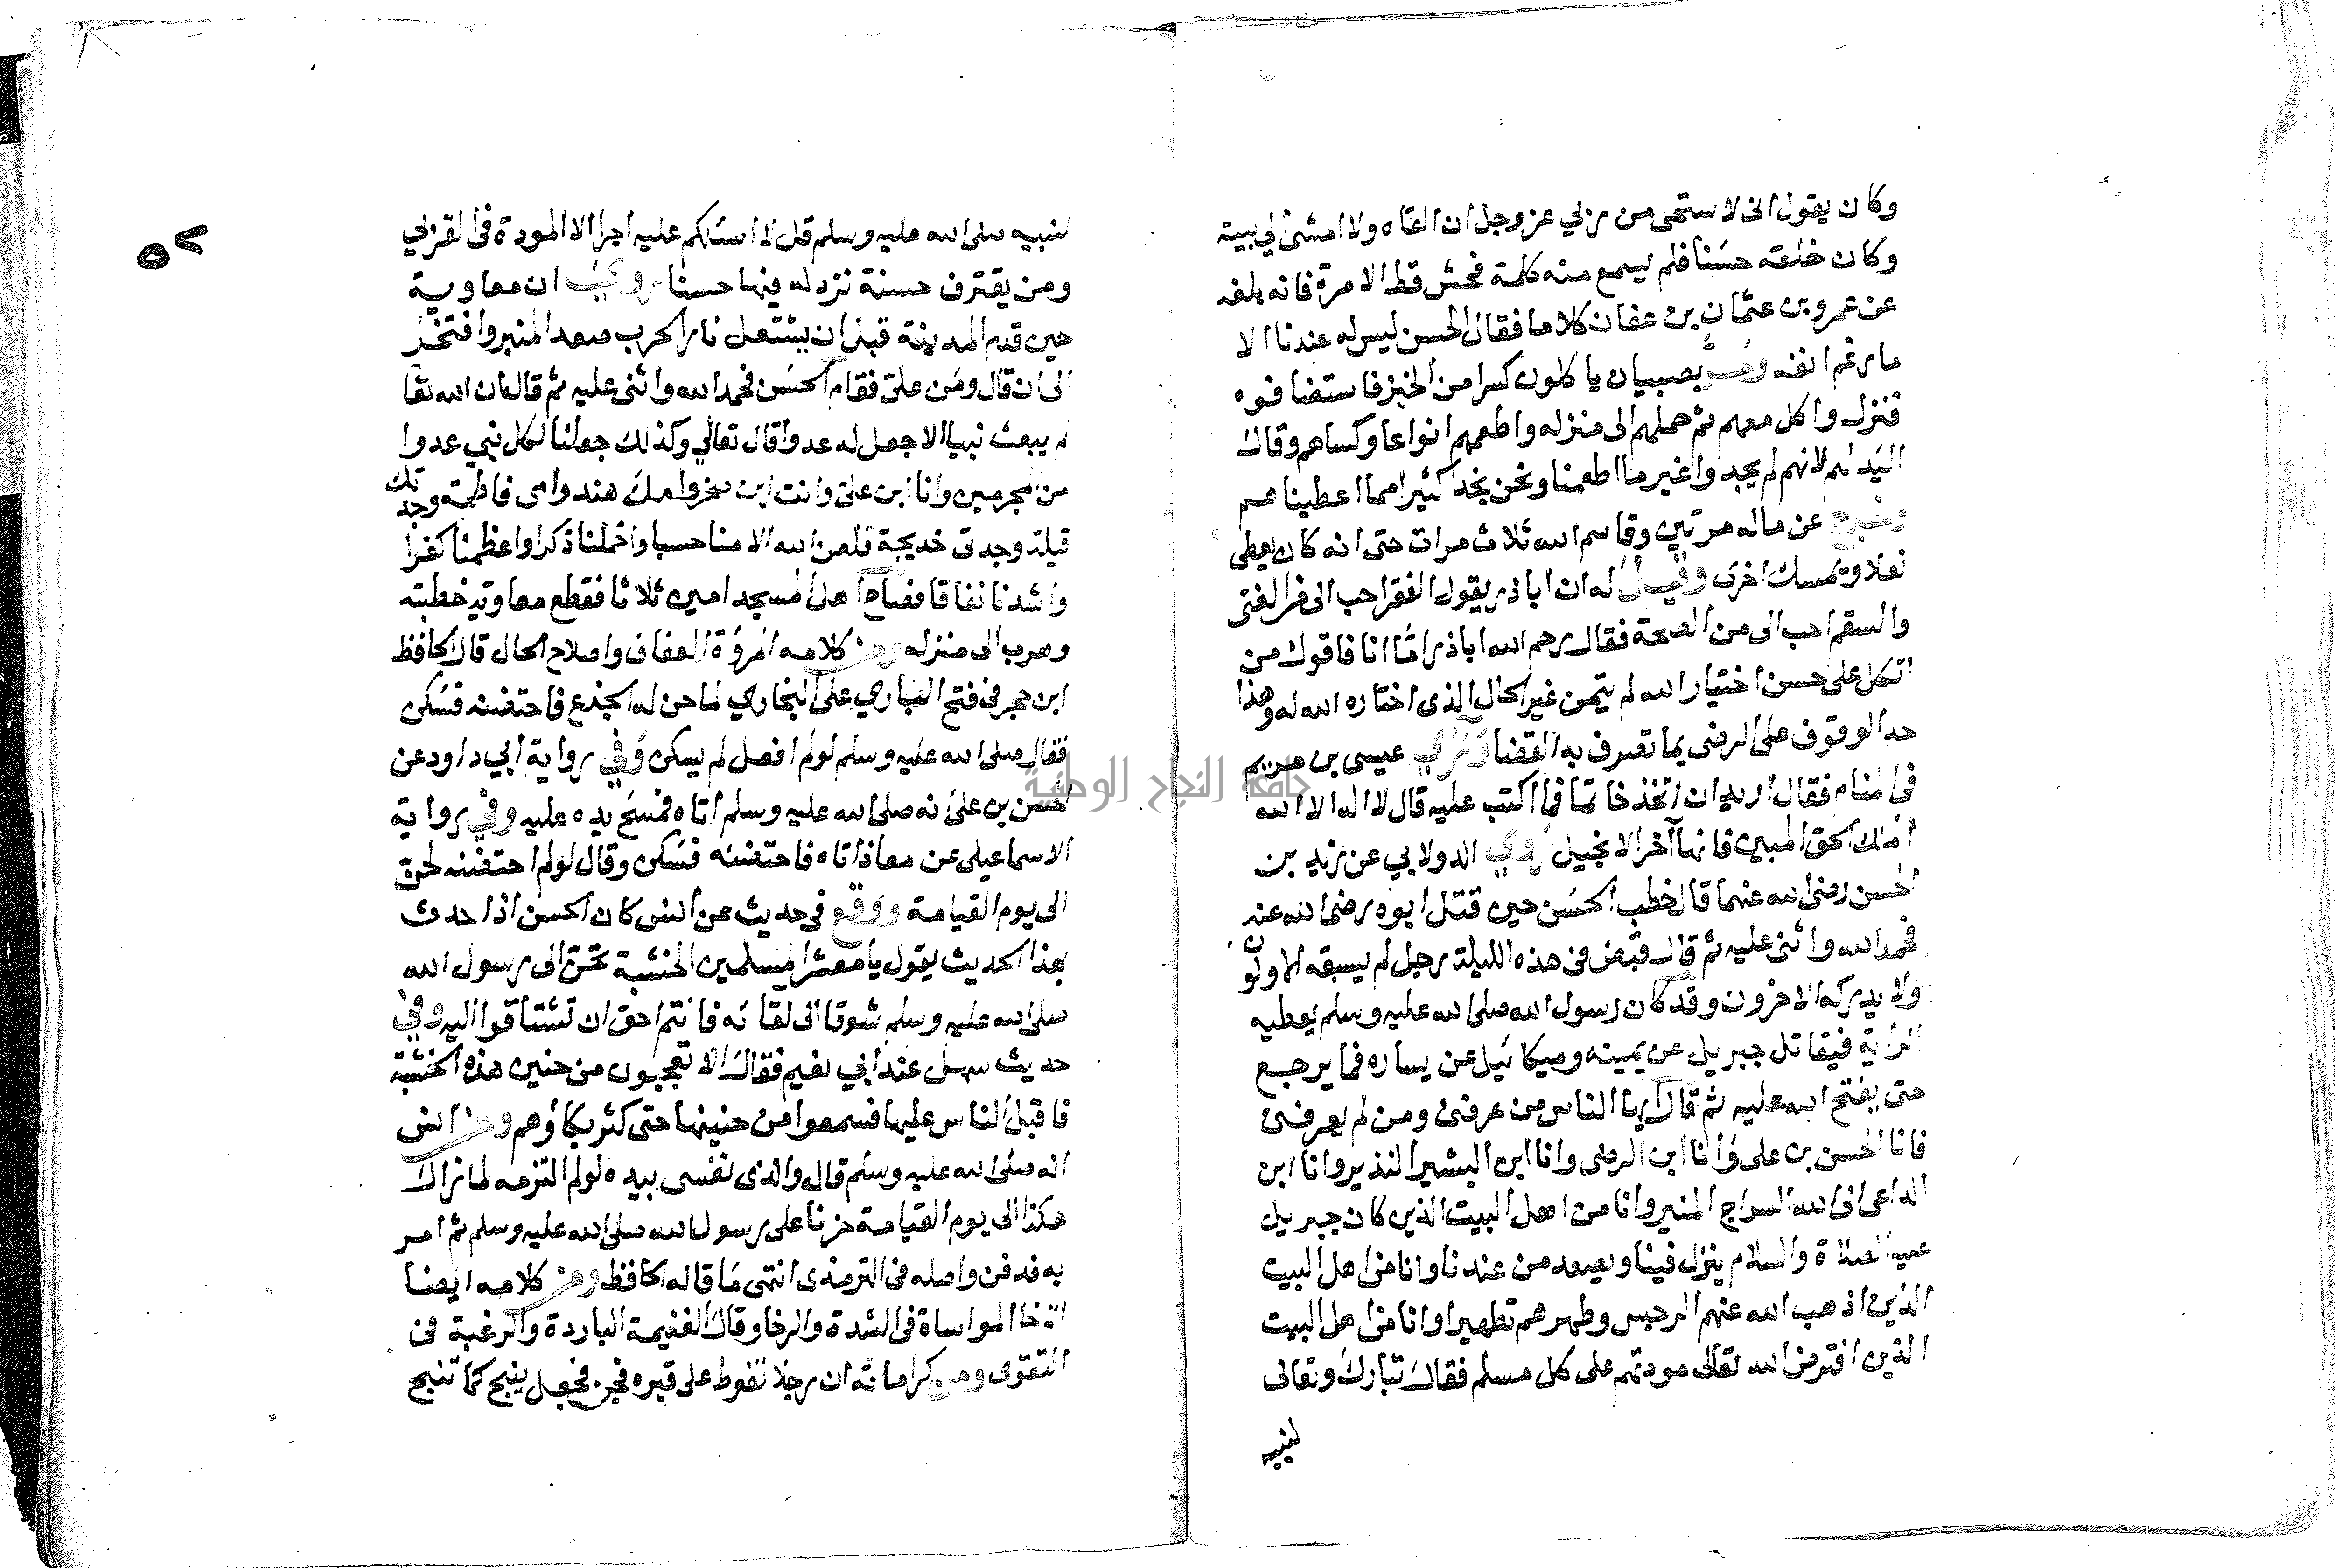 وكان يقول انى لاستحى من ربي عز وجل ان القاه ولا امشى الي بيته
وكان خلقه حسنا فلم يسمع منه كلمة فحش قط الا مرة فانه بلغه
عن عمرو بن عثمان بن عفان كلاما فقال الحسن ليس له عندنا الا
ما رغم انفه ومر بصبيان ياكلون كسرا من الخبز فاستضافوه
فنزل واكل معهم ثم حملهم الى منزله واطعمهم انواعا وكساهم وقال
اليد لهم لانهم لم يجدوا غير ما اطعمنا ونحن نجد كثيرا مما اعطيناهم
وخرج عن ماله مرتين وقاسم الله ثلاث مرات حتى انه كان يعطى
نعلا ويمسك اخرى وقيل له ان اباذر يقول الفقر احب الى من الغنى
والسقم احب الى من الصحة فقال رحم الله اباذر امّا انا فاقول من
اتكل على حسن اختيار الله لم يتمن غير الحال الذى اختاره الله له وهذا
حد الوقوف على الرضى بما تصرف به القضا ورأي عيسى بن مريم
فى المنام فقال اريد ان اتخذ خاتما فما اكتب عليه قال لا اله الا الله
الملك الحق المبين فانها آخر الانجيل روي الدولابي عن زيد بن
الحسن رضى الله عنهما قال خطب الحسن حين قتل ابوه رضى الله عنه
فحمد الله واثنى عليه ثم قال قبض فى هذه الليلة رجل لم يسبقه الاولون
ولا يدركه الاخرون وقد كان رسول الله صلى الله عليه وسلم يعطيه
الراية فيقاتل جبريل عن يمينه وميكائيل عن يساره فما يرجع
حتى يفتح الله عليه ثم قال ايها الناس من عرفنى ومن لم يعرفنى
فانا الحسن بن على وانا ابن الرضى وانا ابن البشير النذير وانا ابن
الداعى الى الله السراج المنير وانا من اهل البيت الذين كان جبريل
عليه الصلاة والسلام ينزل فينا ويصعد من عندنا وانا من اهل البيت
الذين اذهب الله عنهم الرجس وطهرهم تطهيرا وانا من اهل البيت
الذين افترض الله تعالى مودتهم على كل مسلم فقال تبارك وتعالى
لنبيه
٥٢
لنبيه صلى الله عليه وسلم قل لا اسئلكم عليه اجرا الا المودة فى القربي
ومن يقترف حسنة نزد له فيها حسنا روي ان معاوية
حين قدم المدينة قبل ان يشتعل نار الحرب صعد المنبر وافتخر
الى ان قال ومن علىّ فقام الحسن فحمد الله واثنى عليه ثم قال ان الله تعا
لم يبعث نبيا الا جعل له عدوا قال تعالي وكذلك جعلنا لكل نبي عدوا
من المجرمين وانا ابن على وانت ابن صخر وامك هند وامى فاطمة وجدتك
قيلة وجدتى خديجة فلعن الله الامنا حسبا واخملنا ذكرا واعظمنا كفرا
واشدنا نفاقا فصاح اهل المسجد امين ثلاثا فقطع معاوية خطبته
وهرب الى منزله ومن كلامه المروة العفاف واصلاح الحال قال الحافظ
ابن حجر فى فتح الباري على البخاري لما حن له الجذع فاحتضنه فسكن
فقال صلى الله عليه وسلم لو لم افعل لم يسكن وفي رواية ابي داود عن
الحسن بن على انه صلى الله عليه وسلم اتاه فمسح يده عليه وفي رواية
الاسماعيلى عن معاذ اتاه فاحتضنه فسكن وقال لو لم احتضنه لحن
الى يوم القيامة ووقع فى حديث عن انس كان الحسن اذا حدث
بهذا الحديث يقول يا معشر المسلمين الخشبة تحنّ الى رسول الله
صلى الله عليه وسلم شوقا الى لقائه فانتم احق ان تشتاقوا اليه وفي
حديث سهل عند ابي نعيم فقال الا تعجبون من حنين هذه الخشبة
فاقبل الناس عليها فسمعوا من حنينها حتى كثر بكاؤهم وعن انس
انه صلى الله عليه وسلم قال والذى نفسى بيده لو لم التزمه لما زال
هكذا الى يوم القيامة حزنا على رسول الله صلى الله عليه وسلم ثم امر
به فدفن واصله فى الترمذى انتهى ما قاله الحافظ ومن كلامه ايضا
الاخا المواساة فى الشدة والرخا وقال الغنيمة الباردة والرغبة فى
التقوى ومن كراماته ان رجلا تغوط على قبره فجن فجعل ينبح كما تنبح
جامعة النجاح الوطنية